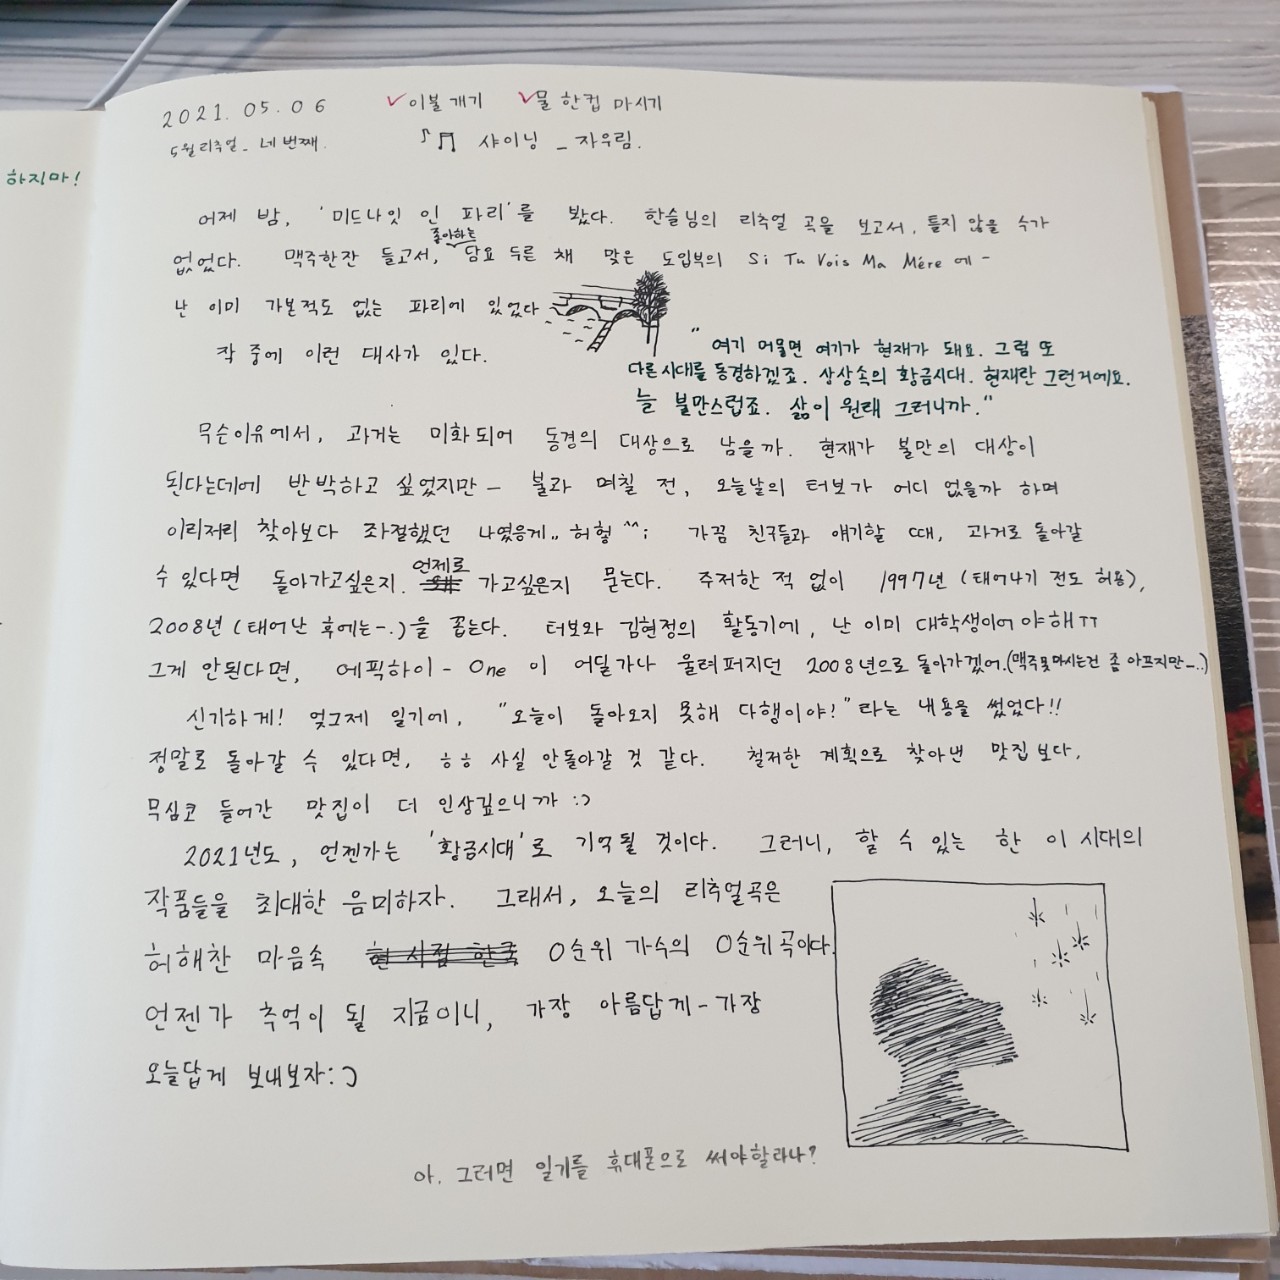 하지마!
2021. 05. 06 ✓이불 개기 ✓물 한컵 마시기
5월 리추얼_ 네 번째. ♪♬ 샤이닝 _ 자우림.
어제 밤, '미드나잇 인 파리'를 봤다. 한슬님의 리추얼 곡을 보고서, 틀지 않을 수가
없었다. 맥주한잔 들고서, 좋아하는 담요 두른 채 맞은 도입부의 Si Tu Vois Ma Mére 에-
난 이미 가본적도 없는 파리에 있었다
작 중에 이런 대사가 있다.
"여기 머물면 여기가 현재가 돼요. 그럼 또
다른 시대를 동경하겠죠. 상상속의 황금시대. 현재란 그런거에요.
늘 불만스럽죠. 삶이 원래 그러니까."
무슨이유에서, 과거는 미화되어 동경의 대상으로 남을까. 현재가 불만의 대상이
된다는데에 반박하고 싶었지만 - 불과 며칠 전, 오늘날의 터보가 어디 없을까 하며
이리저리 찾아보다 좌절했던 나였응게.. 허헝^^; 가끔 친구들과 얘기할 때, 과거로 돌아갈
수 있다면 돌아가고싶은지. 언제로 가고싶은지 묻는다. 주저한 적 없이 1997년 (태어나기 전도 허용),
2008년 (태어난 후에는-.)을 꼽는다. 터보와 김현정의 활동기에, 난 이미 대학생이어야해ㅠㅠ
그게 안된다면, 에픽하이 - One 이 어딜가나 울려퍼지던 2008년으로 돌아가겠어.(맥주못마시는건 좀 아프지만-..)
신기하게! 엊그제 일기에, "오늘이 돌아오지 못해 다행이야!" 라는 내용을 썼었다!!
정말로 돌아갈 수 있다면, ㅎㅎ 사실 안돌아갈 것 같다. 철저한 계획으로 찾아낸 맛집보다,
무심코 들어간 맛집이 더 인상깊으니까 :)
2021년도, 언젠가는 '황금시대'로 기억될 것이다. 그러니, 할 수 있는 한 이 시대의
작품들을 최대한 음미하자. 그래서, 오늘의 리추얼곡은
허해찬 마음속 0순위 가수의 0순위곡이다.
언젠가 추억이 될 지금이니, 가장 아름답게 - 가장
오늘답게 보내보자:)
아. 그러면 일기를 휴대폰으로 써야할라나?